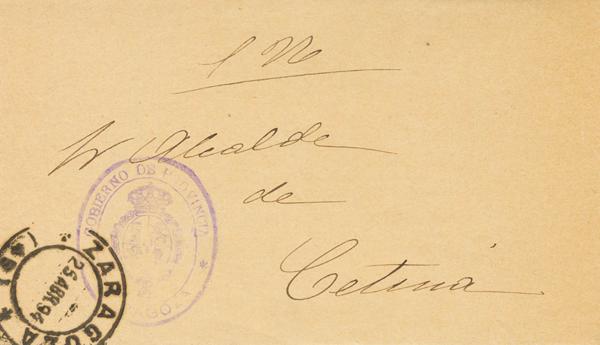 S N
Sr Alcalde
de
Cetina
GOBIERNO DE PROVINCIA * ZARAGOZA
ZARAGOZA * (49)
25 ABR 94